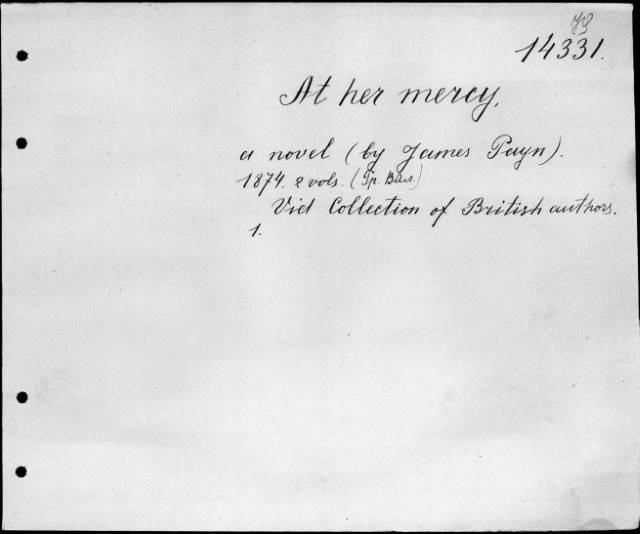 14331.
At her mercy,
a novel (by James Payn).
1874. 2 vols.
Vid Collection of British authors.
1.